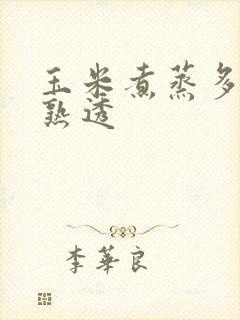 玉米煮蒸多
熟透
李華良